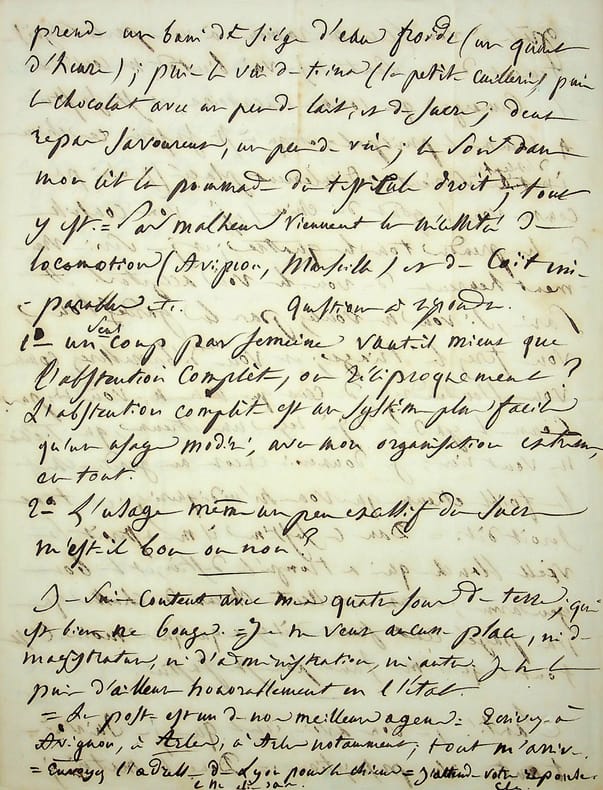 prends un bain de siège d'eau froide (un quart
d'heure); puis le vin de (la petite cuillerée), puis
le chocolat avec un peu de lait, et de sucre; deux
repas savoureux, un peu de vin; le soir dans
mon lit la pommade du testicule droit; tout
y est. = Par malheur viennent les de
locomotion (Avignon, Marseille) et de Coït
Question à répondre.
1° un seul coup par semaine vaut-il mieux que
l'abstention complète, ou réciproquement?
L'abstention complète est un système plus facile
qu'un usage modéré, avec mon organisation extrême,
en tout.
2° L'usage même un peu excessif du sucre
m'est-il bon ou non?
Je suis content avec mes quatre sous de terre, qui
est bien ne bouge. = Je ne veux aucune place, ni de
magistrature, ni d'administration, ni autre. Je ne le
puis d'ailleurs honorablement en l'état
= La poste est un de nos meilleurs agens = Ecrivez à
Avignon, à Arles, à Arles notamment; tout m'arrive.
= Envoyez l'adresse de Lyon pour le chien = J'attends votre réponse.